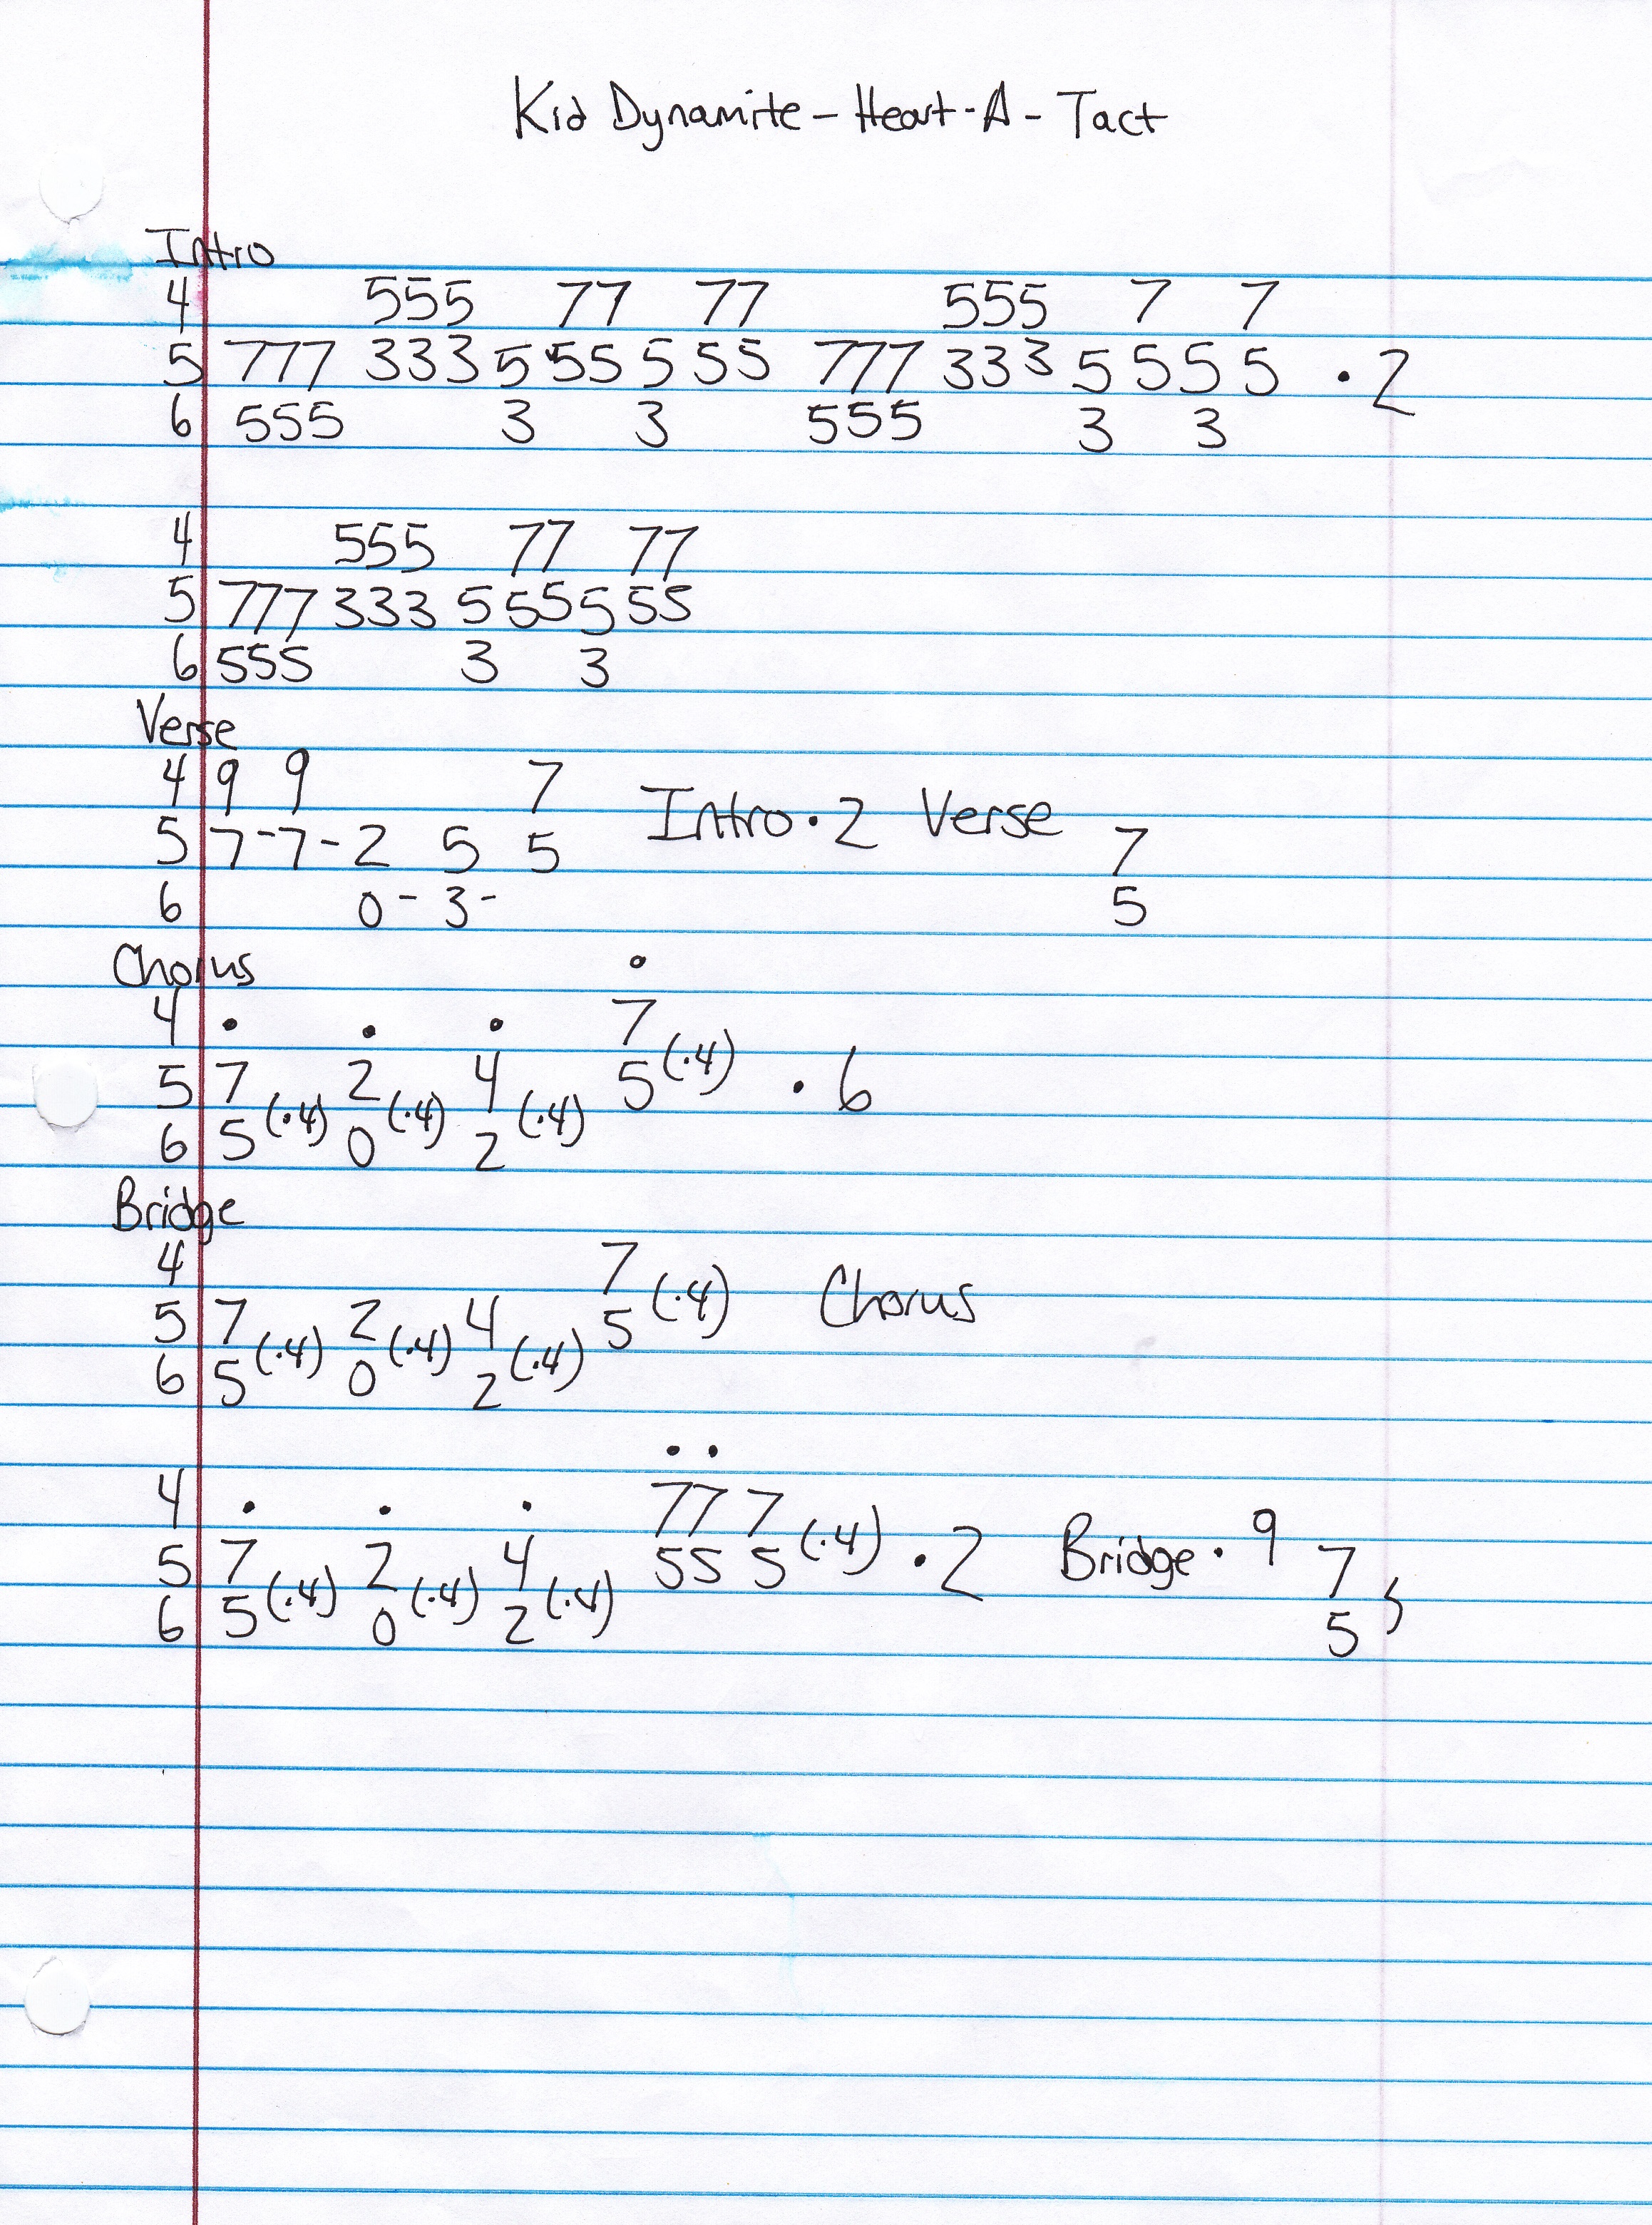 Kid Dynamite - Heart-A-Tact
Intro
4 555 77 77 555 7 7
5 777 333 5 55 5 55 777 333 5 5 5 5 · 2
6 555 3 3 555 3 3
4 555 77 77
5 777 333 5 55 5 55
6 555 3 3
Verse
4 9 9 7
5 7-7-2 5 5 Intro · 2 Verse 7
6 0- 3- 5
Chorus
4 · · · 7 ·
5 7 2 4 5 (·4) · 6
6 5 (·4) 0 (·4) 2 (·4)
Bridge
4 7
5 7 2 4 5 (·4) Chorus
6 5 (·4) 0 (·4) 2 (·4)
· ·
4 · · · 77 7
5 7 2 4 55 5 (·4) · 2 Bridge · 9 7
6 5 (·4) 0 (·4) 2 (·4) 5